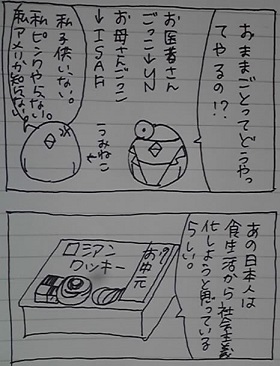 おままごとってどうやっ
てやるの!?
お医者さん
ごっこ→UN
お母さんごっこ
→ISAF
つみねこ
私子供いない。
私ピンクやらない。
私アメリカ知らない。
あの日本人は
食生活から社会主義
化しようと思っている
らしい。
お中元
ロシアン
クッキー